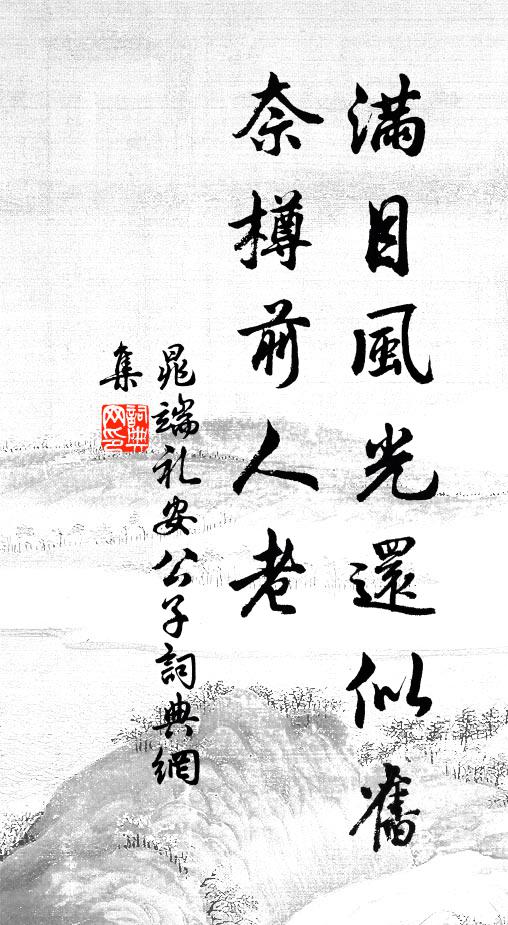 滿目風光還似舊
奈樽前人老
晁端礼安公子詞典網
集
詞典网印